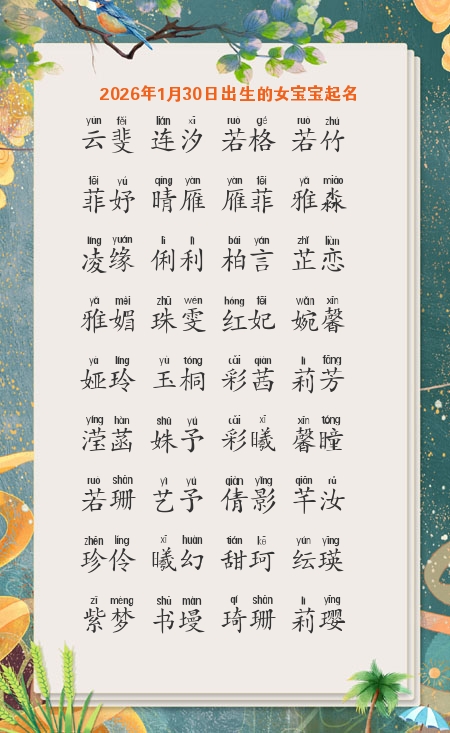 2026年1月30日出生的女宝宝起名
yún fěi lián xī ruò gé ruò zhú
云斐 连汐 若格 若竹
fēi yú qíng yàn yàn fēi yǎ miǎo
菲妤 晴雁 雁菲 雅淼
líng yuán lì lì bǎi yán zhǐ liàn
凌缘 俐利 柏言 芷恋
yǎ mèi zhū wén hóng fēi wǎn xīn
雅媚 珠雯 红妃 婉馨
yà líng yù tóng cǎi qiàn lì fāng
娅玲 玉桐 彩茜 莉芳
yíng hàn shū yǔ cǎi xī xīn tóng
滢菡 姝予 彩曦 馨瞳
ruò shān yì yǔ qiàn yǐng qiān rǔ
若珊 艺予 倩影 芊汝
zhēn líng xī huàn tián kē yún yīng
珍伶 曦幻 甜珂 纭瑛
zǐ mèng shū màn qí shān lì yīng
紫梦 书墁 琦珊 莉璎